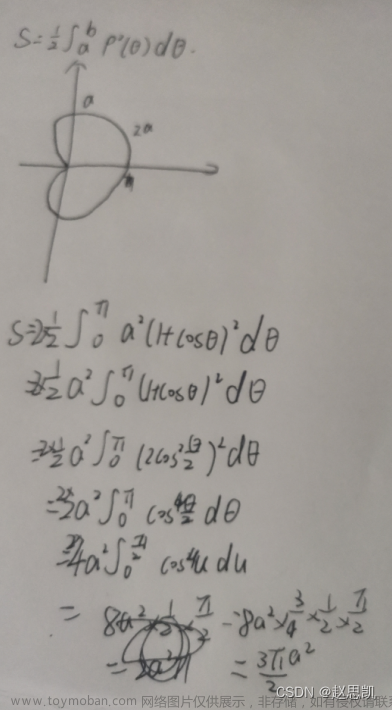 S=½∫ₐᵇ ρ²(θ)dθ.
a
2a
S=2×½∫₀^π a²(1+cosθ)²dθ
=2×½a²∫₀^π(1+cosθ)²dθ
=2×½a²∫₀^π(2cos²θ/2)²dθ
=2×2a²∫₀^π cos⁴θ/2 dθ
=2×4a²∫₀^(π/2) cos⁴u du
= =8a²×3/4×1/2×π/2
=3πa²/2
CSDN @赵思凯
www.toymoban.com 网络图片仅供展示,非存储,如有侵权请联